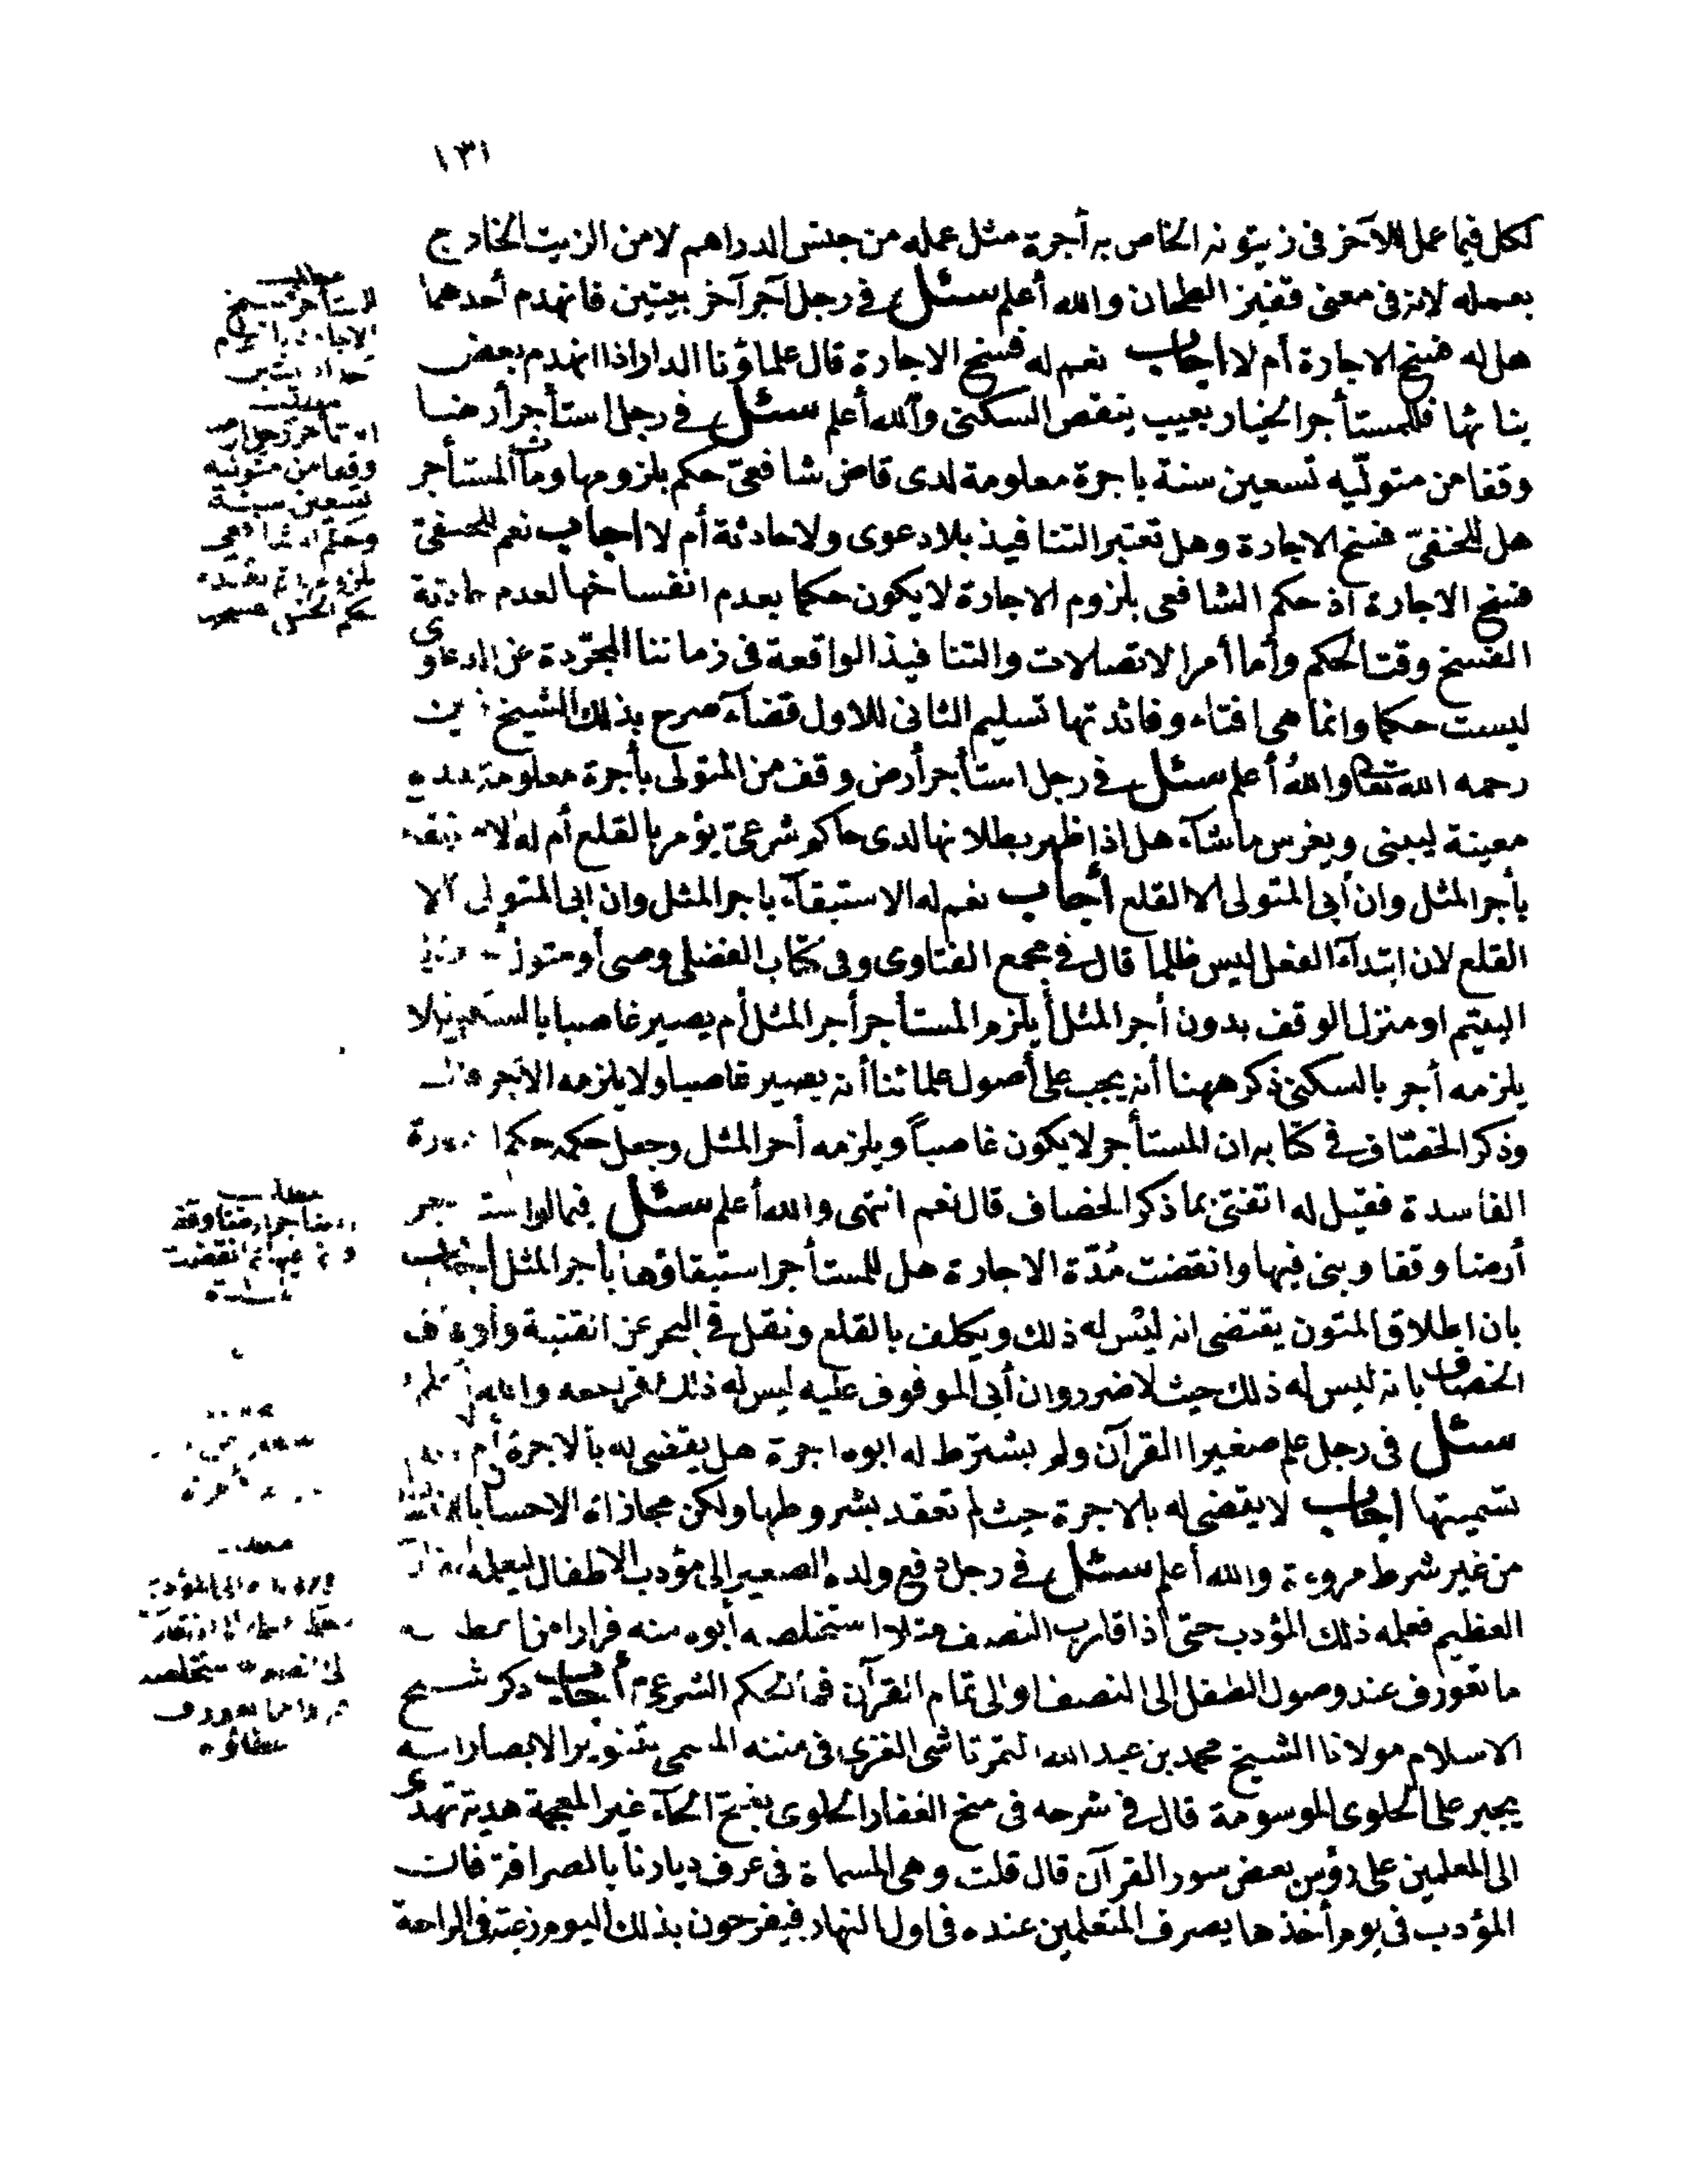 ١٣١
لكل فيما عمل للآخر فى زيتونه الخاص به أجرة مثل عمله من جنس الدراهم لا من الزيت الخارج
بعمله لانه فى معنى قفيز الطحان والله أعلم سئل فى رجل آجر آخر بيتين فانهدم أحدهما
هل له فسخ الاجارة أم لا اجاب نعم له فسخ الاجارة قال علماؤنا الدار اذا انهدم بعض
بنائها فللمستأجر الخيار بعيب ينقص السكنى والله أعلم سئل فى رجل استأجر أرضا
وقفا من متوليه تسعين سنة باجرة معلومة لدى قاض شافعىّ حكم بلزومها ومات المستأجر
هل للحنفىّ فسخ الاجارة وهل تعتبر التنافيذ بلا دعوى ولا حادثة أم لا اجاب نعم للحنفىّ
فسخ الاجارة اذ حكم الشافعى بلزوم الاجارة لا يكون حكما بعدم انفساخها لعدم حادثة
الفسخ وقت الحكم وأما أمر الاتصلات والتنافيذ الواقعة فى زماننا المجرّدة عن الدعاوى
ليست حكما وانما هى افتاء وفائدتها تسليم الثانى للاول قضاء صرح بذلك الشيخ زين
رحمه الله تعالى والله أعلم سئل فى رجل استأجر أرض وقف من المتولى بأجرة معلومة مدة
معينة ليبنى ويغرس ما شاء هل اذا ظهر بطلانها لدى حاكم شرعىّ يؤمر بالقلع أم له
بأجر المثل وان أبى المتولى الا القلع أجاب نعم له الاستبقاء باجر المثل وان ابى المتولى الا
القلع لان ابتداء الفعل ليس ظلما قال فى مجمع الفتاوى وفى كتاب الفضلى وصى أو متول
اليتيم او منزل الوقف بدون أجر المثل أيلزم المستأجر أجر المثل أم يصير غاصبا بالسكنى ولا
يلزمه أجر بالسكنى ذكر ههنا أنه يجب على أصول علمائنا أنه يصير غاصبا ولا يلزمه الاجر
وذكر الخصّاف فى كتابه ان المستأجر لا يكون غاصباً ويلزمه أجر المثل وجعل حكمه حكم
الفاسدة فقيل له اتفتى بما ذكر الخصاف قال نعم انتهى والله أعلم سئل فيما لو
أرضا وقفا وبنى فيها وانقضت مُدّة الاجارة هل للمستأجر استبقاؤها بأجر المثل أجاب
بان اطلاق المتون يقتضى انه ليس له ذلك ويكلف بالقلع ونقل فى البحر عن القنية
الخصاف بانه ليس له ذلك حيث لا ضرر وان أبى الموقوف عليه ليس له ذلك فراجعه والله أعلم
سئل فى رجل علم صغيرا القرآن ولم يشترط له ابوه اجرة هل يقضى له بالاجرة أم
تسميتها اجاب لا يقضى له بالاجرة حيث لم تعقد بشروطها ولكن مجازاة الاحسان
من غير شرط مروءة والله أعلم سئل فى رجل دفع ولده الصغير الى مؤدب الاطفال ليعلمه
العظيم فعلمه ذلك المؤدب حتى اذا قارب النصف مثلا استخلصه أبوه منه فرارا من
ما تعورف عند وصول الطفل الى النصف او الى تمام القرآن فما الحكم الشرعىّ أجاب ذكر شيخ
الاسلام مولانا الشيخ محمد بن عبد الله التمرتاشى الغزى فى متنه المسمى بتنوير الابصار انه
يجبر على الحلوى الموسومة قال فى شرحه فى منح الغفار الحلوى بفتح الحاء غير المعجمة هدية تهدى
الى المعلمين على رؤس بعض سور القرآن قال قلت وهى المسماة فى عرف ديارنا بالصرافة فان
المؤدب فى يوم أخذها يصرف المتعلمين عنده فى اول النهار فيفرحون بذلك اليوم رغبة فى الراحة
مطلب
للمستأجر فسخ
وقفا من متوليه
تسعين سنة
مطلب
ثم انقضت
مطلب